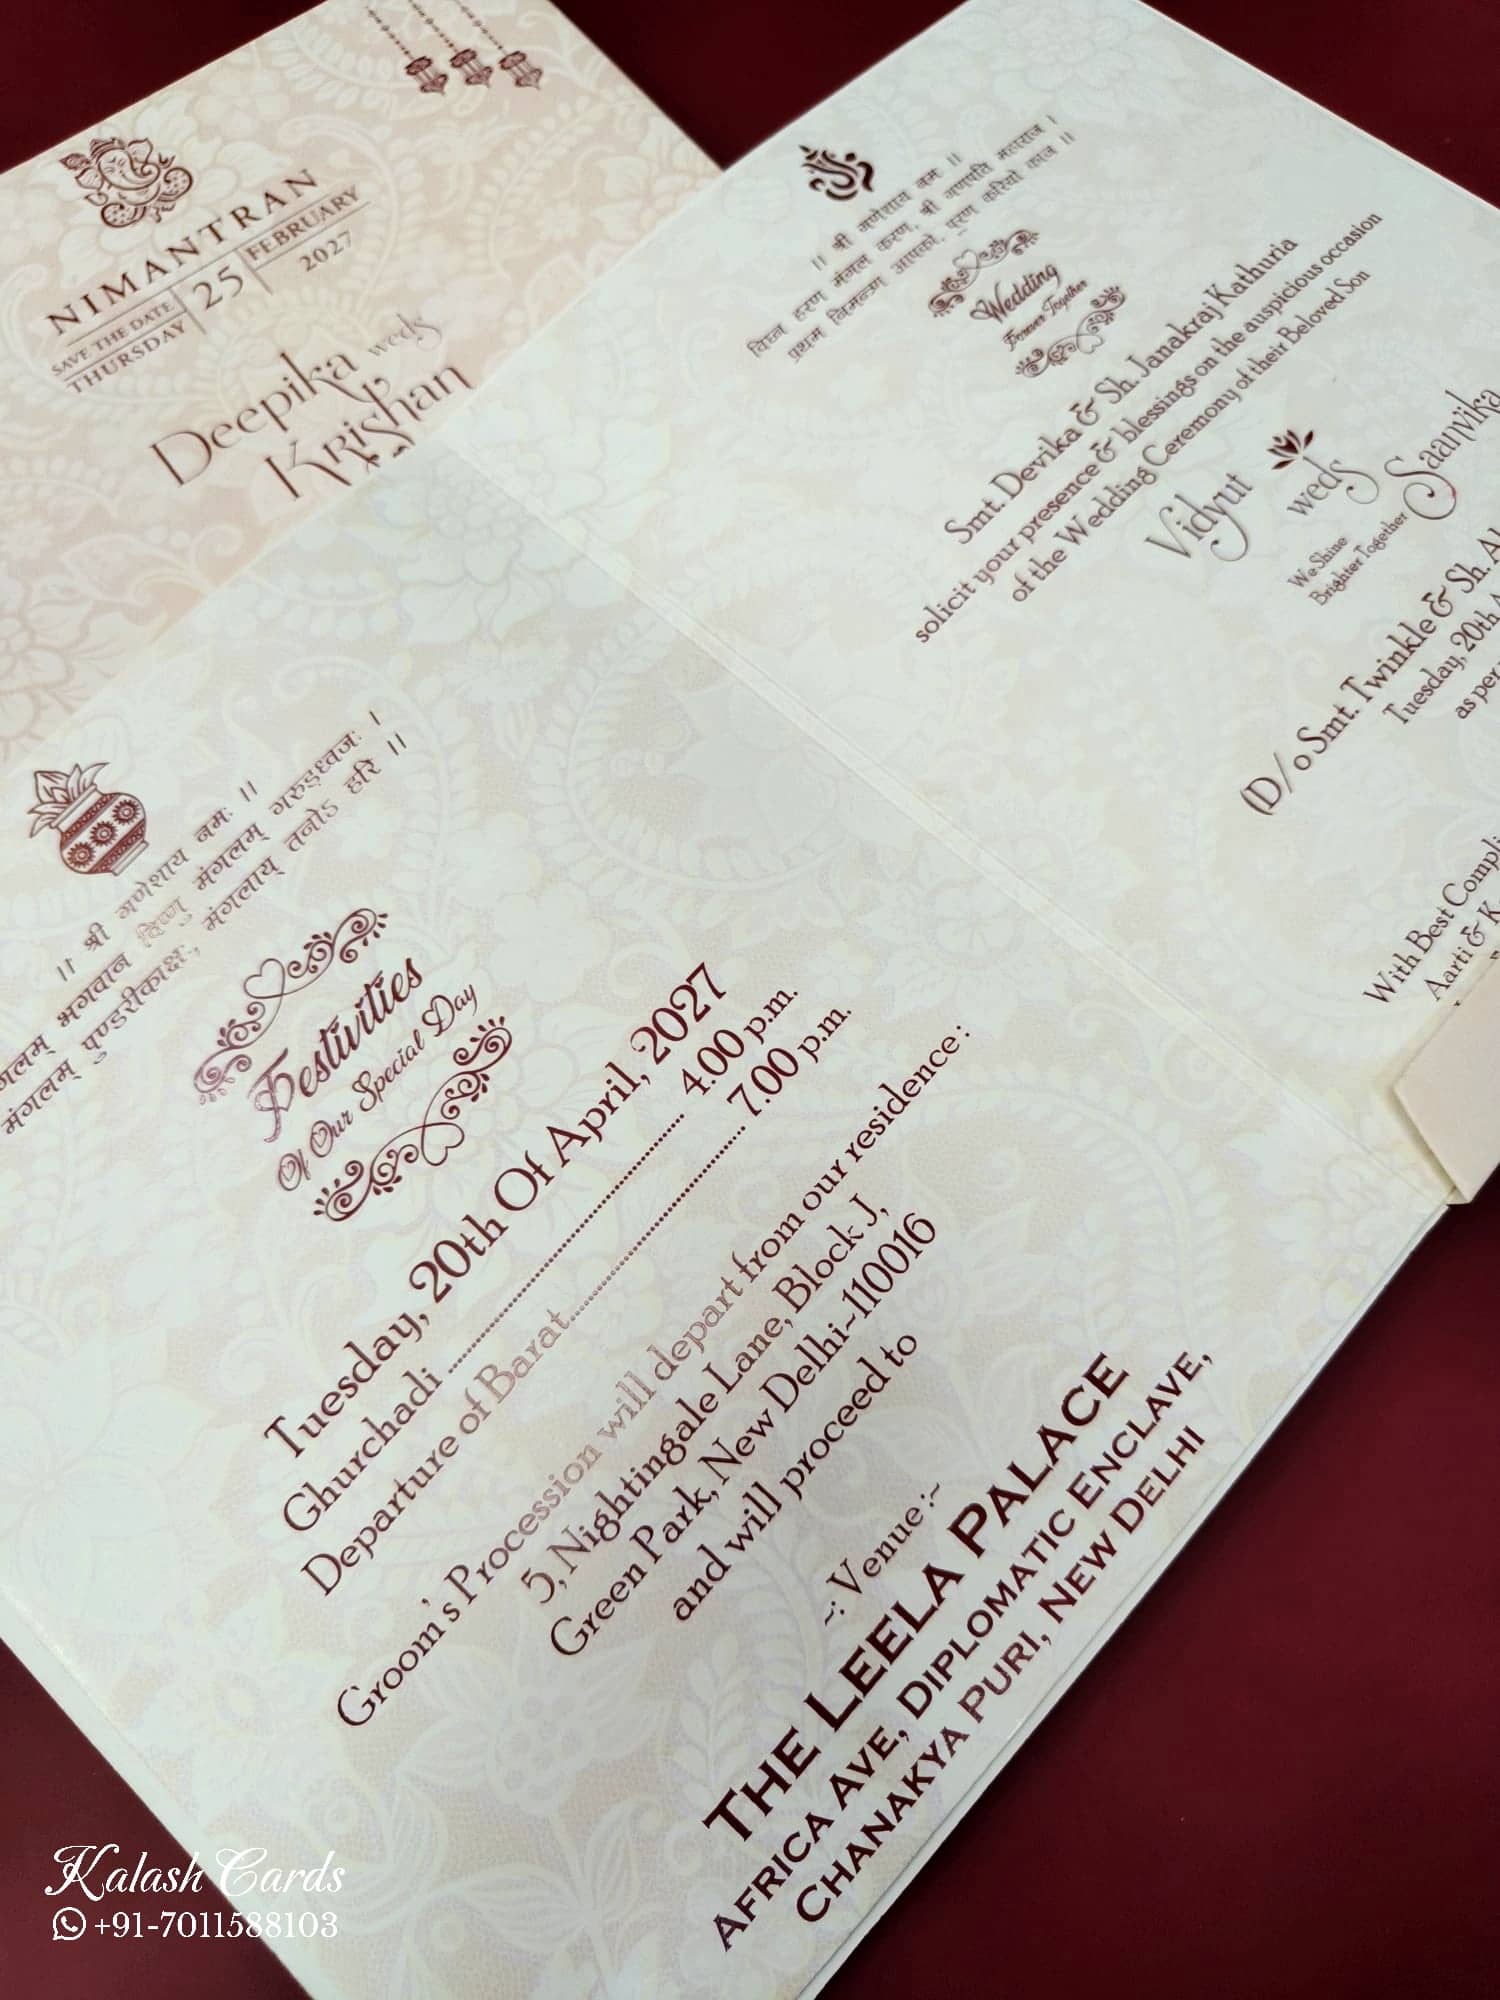 NIMANTRAN
SAVE THE DATE
THURSDAY
25
FEBRUARY
2027
Deepika weds
Krishan
।। श्री गणेशाय नमः ।।
विघ्न हरण मंगल करण, श्री गणपति महाराज ।
प्रथम निमन्त्रण आपको, पूरण करियो काज ।।
Wedding
Forever Together
Smt. Devika & Sh. Janakraj Kathuria
solicit your presence & blessings on the auspicious occasion
of the Wedding Ceremony of their Beloved Son
Vidyut weds Saanvika
We Shine
Brighter Together
(D/o Smt. Twinkle & Sh.
Tuesday, 20th
as per
With Best
Aarti &
।। श्री गणेशाय नमः ।।
भगवान विष्णु मंगलम् गरुड़ध्वजः ।
मंगलम् पुण्डरीकाक्षः, मंगलाय् तनोऽ हरि ।।
Festivities
Of Our Special Day
Tuesday, 20th Of April, 2027
Ghurchadi ........................ 4.00 p.m.
Departure of Barat........................ 7.00 p.m.
Groom's Procession will depart from our residence :
5, Nightingale Lane, Block J,
Green Park, New Delhi~110016
and will proceed to
~: Venue :~
THE LEELA PALACE
AFRICA AVE, DIPLOMATIC ENCLAVE,
CHANAKYA PURI, NEW DELHI
Kalash Cards
+91-7011588103